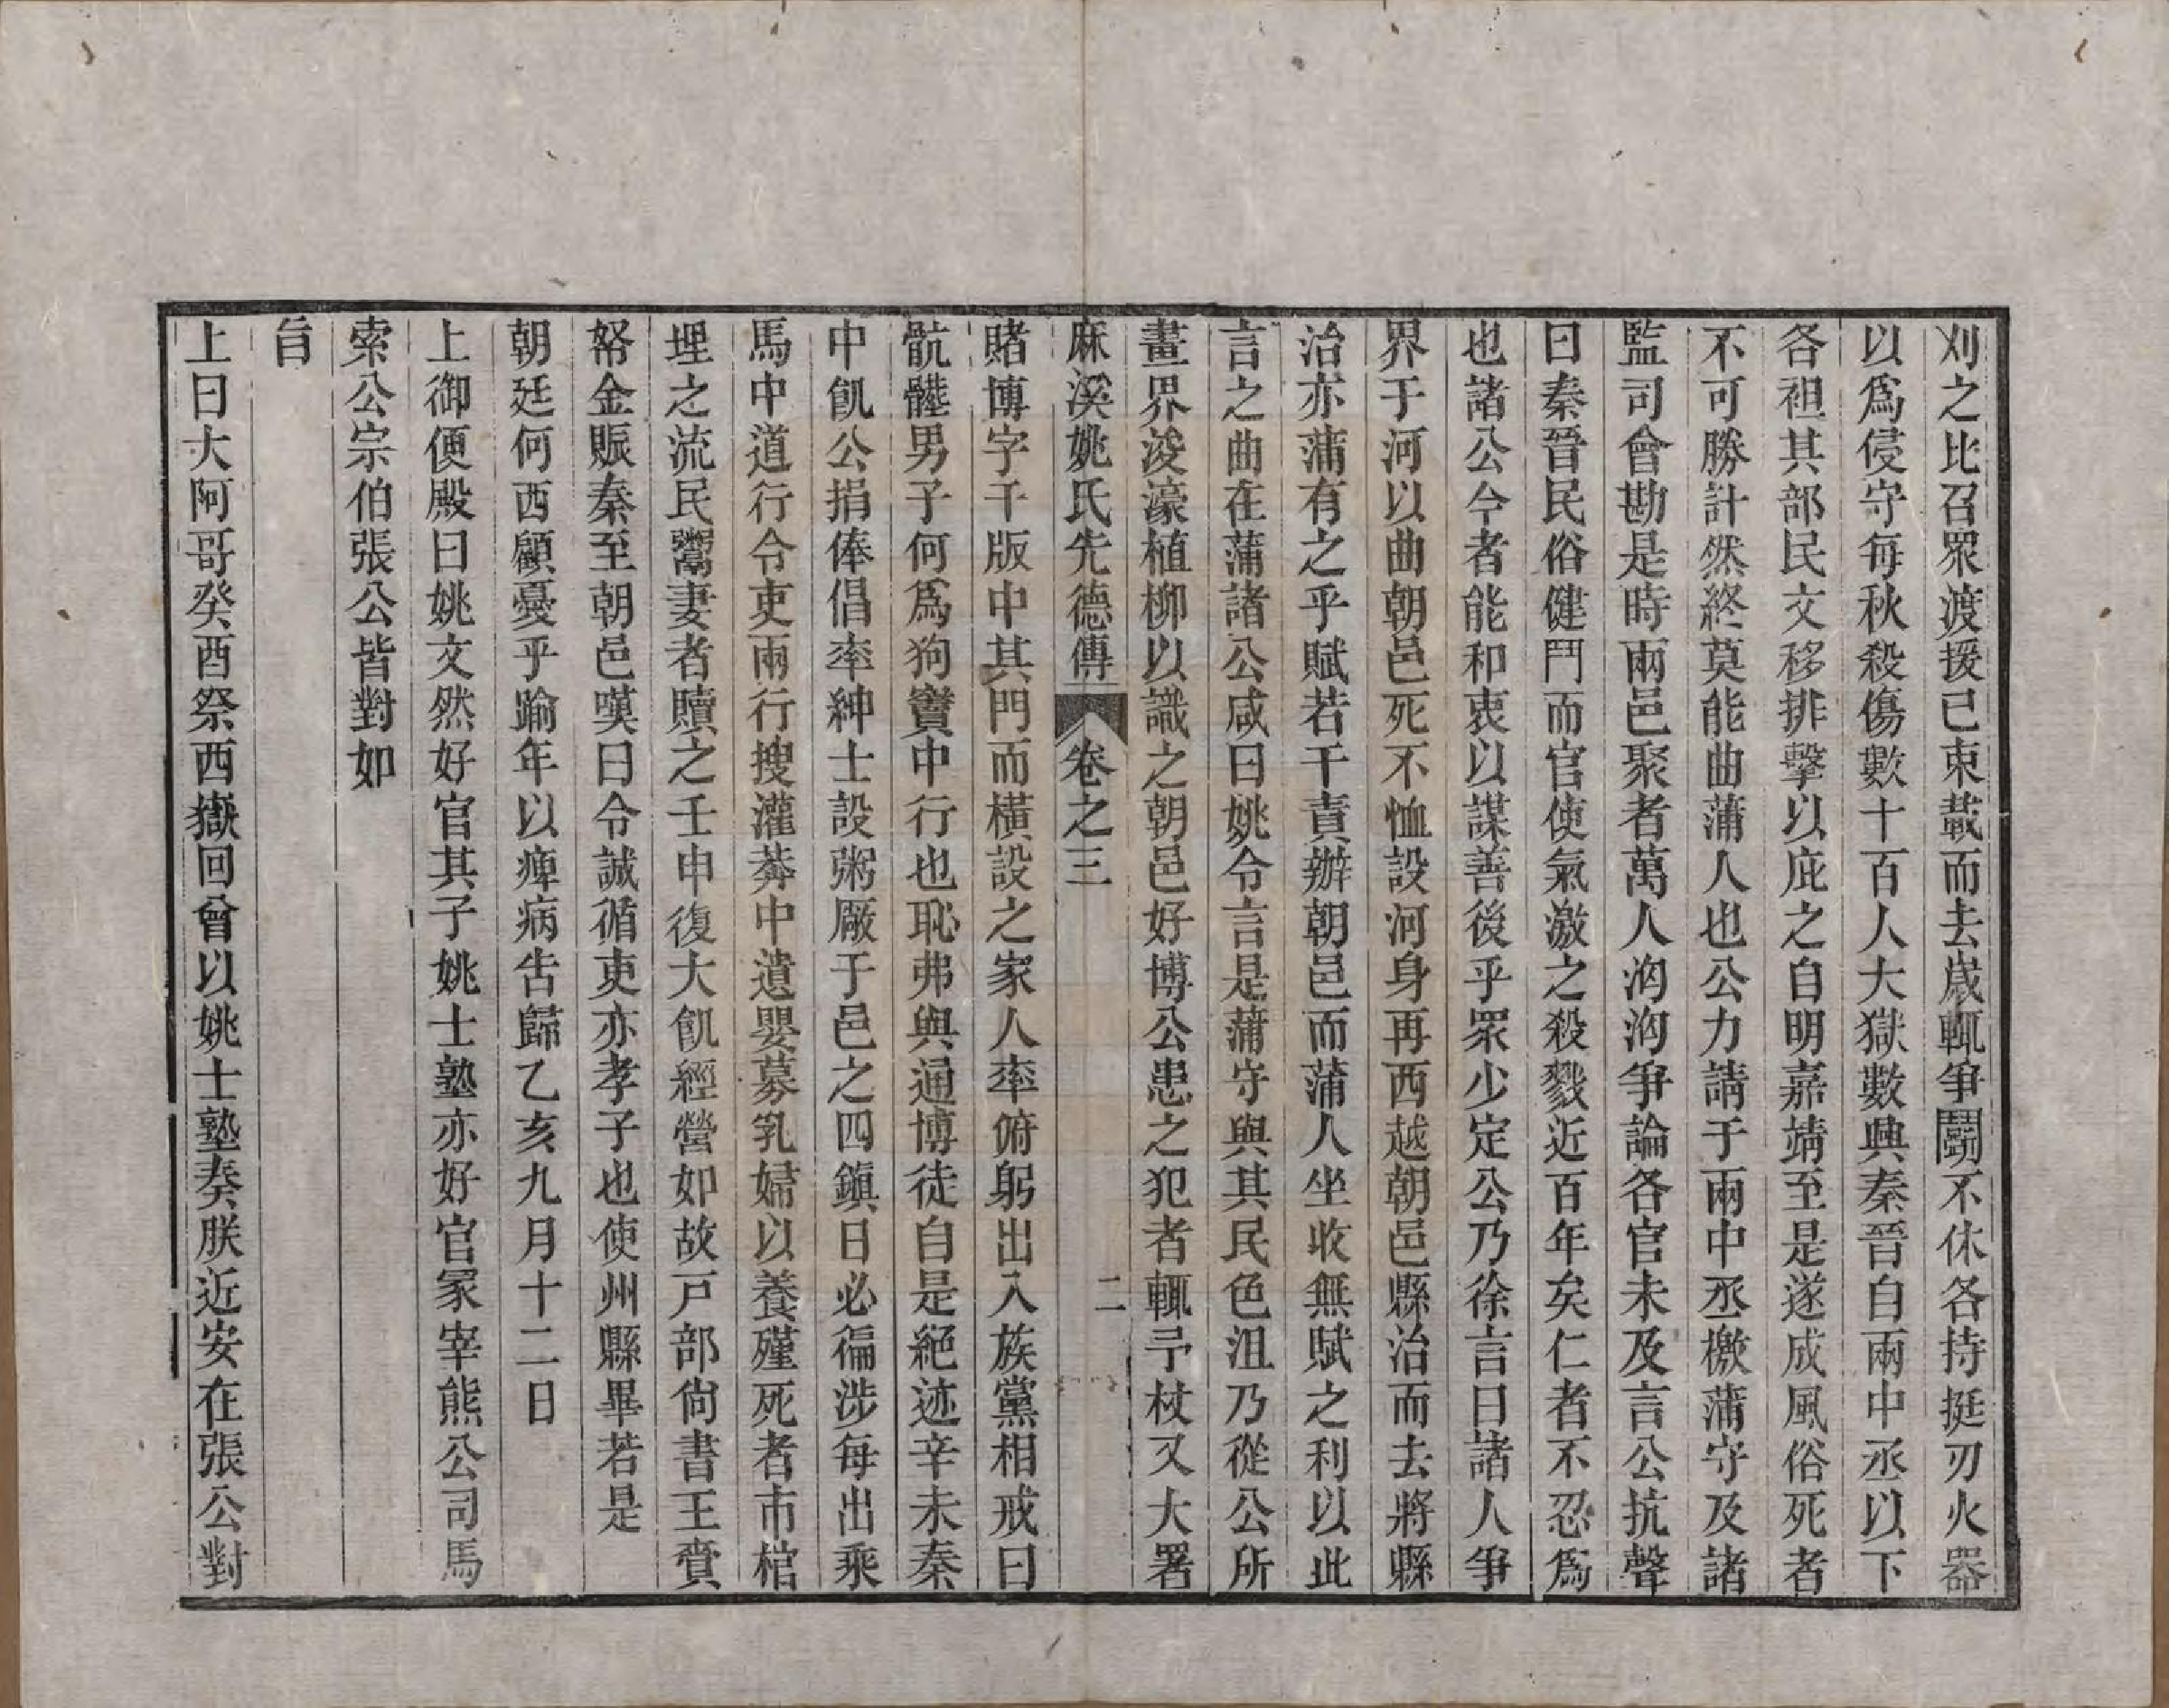 刈之比召眾渡援已束載而去歲輒爭鬭不休各持挺刃火器
以爲侵守每秋殺傷數十百人大獄數興秦晉白兩中丞以下
各袒其部民文移排擊以庇之自明嘉靖至是遂成風俗死者
不可勝計然終莫能曲蒲人也公力請于兩中丞檄蒲守及諸
監司會勘是時兩邑聚者萬人洶洶爭論各官未及言公抗聲
曰秦晉民俗健鬥而官使氣激之殺戮近百年矣仁者不忍爲
也諸公今者能和衷以謀善後乎眾少定公乃徐言曰諸人爭
界于河以曲朝邑死不恤設河身再西越朝邑縣治而去將縣
治亦蒲有之乎賦若干責辦朝邑而蒲人坐收無賦之利以此
言之曲在蒲諸公咸曰姚令言是蒲守與其民色沮乃從公所
畫界浚濠植柳以識之朝邑好博公患之犯者輒予杖又大署
麻溪姚氏先德傳 卷之三 二
賭博字于版中其門而橫設之家人率俯躬出入族黨相戒曰
骯髒男子何爲狗竇中行也恥弗與通博徒自是絕迹辛未秦
中飢公捐俸倡率紳士設粥廠于邑之四鎭日必徧涉每出乘
馬中道行令吏兩行搜灌莽中遺嬰募乳婦以養殣死者市棺
埋之流民鬻妻者贖之壬申復大飢經營如故戶部尙書王賫
帑金賑秦至朝邑嘆曰令誠循吏亦孝子也使州縣畢若是
朝廷何西顧憂乎踰年以痺病告歸乙亥九月十二日
上御便殿曰姚文然好官其子姚士塾亦好官冢宰熊公司馬
索公宗伯張公皆對如
旨
上曰大阿哥癸酉祭西嶽回曾以姚士塾奏朕近安在張公對